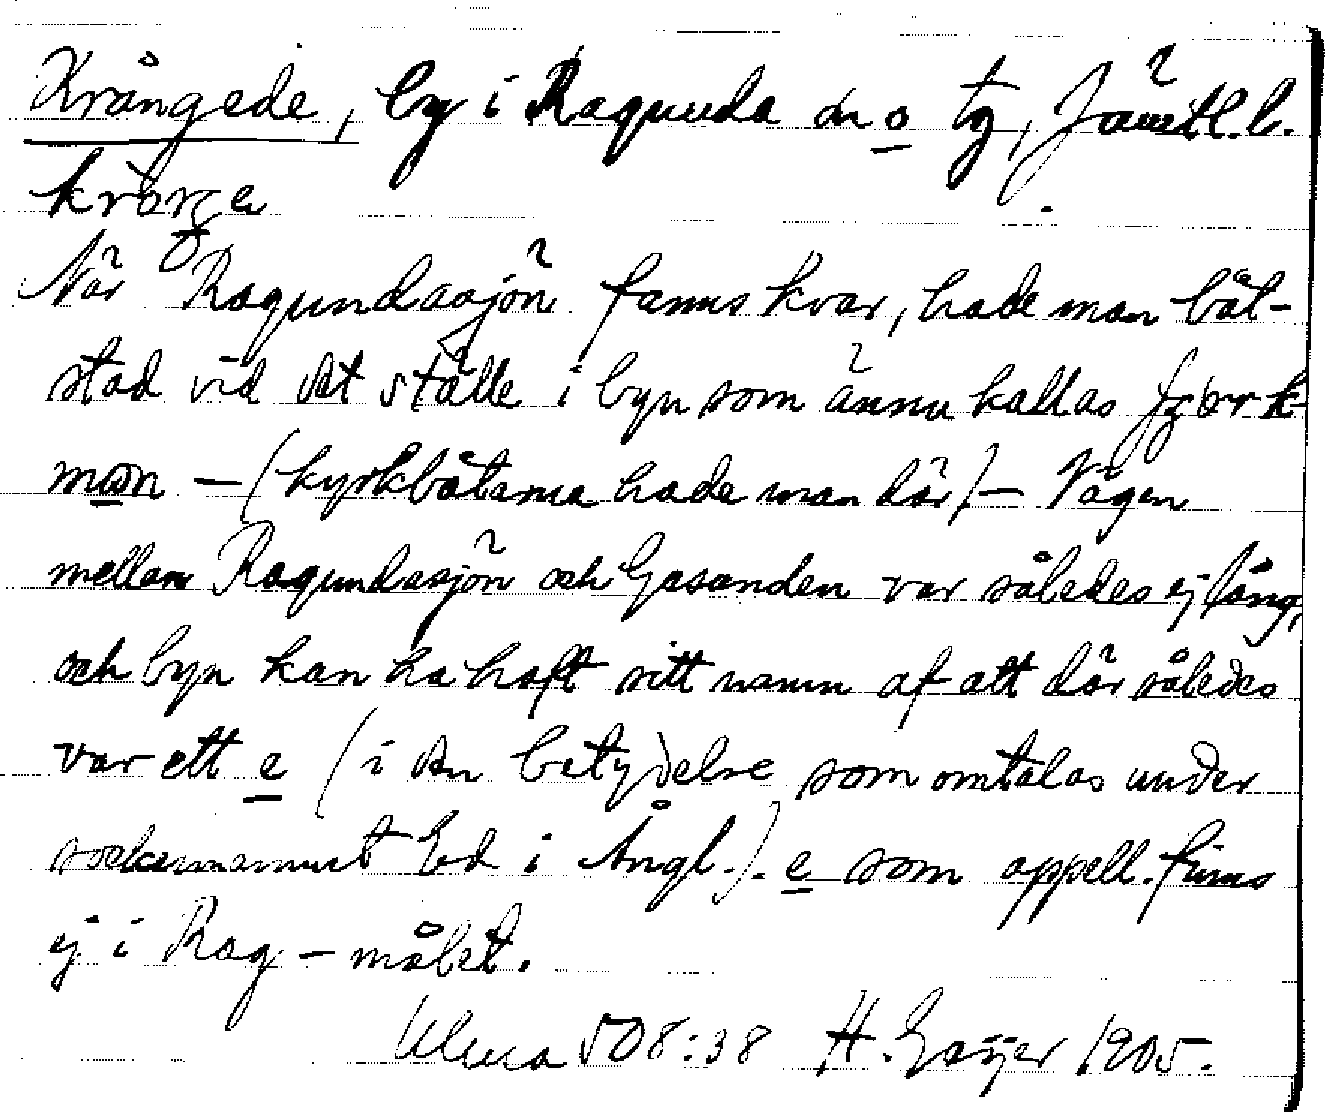 Krångede, by i Ragunda sn o tg, Jämtl. l.
När Ragundasjön fanns kvar, hade man båt-
stad vid det ställe i byn som ännu kallas
man – (kyrkbåtarna hade man där) – Vägen
mellan Ragundasjön och Gesunden var således ej lång,
och byn kan ha haft sitt namn af att där således
var ett e (i den betydelse som omtalas under
sockennamnet Ed i Ångl.). e som appell. finns
ej i Rag-målet.
Ulma 508:38 H. Geijer 1905.